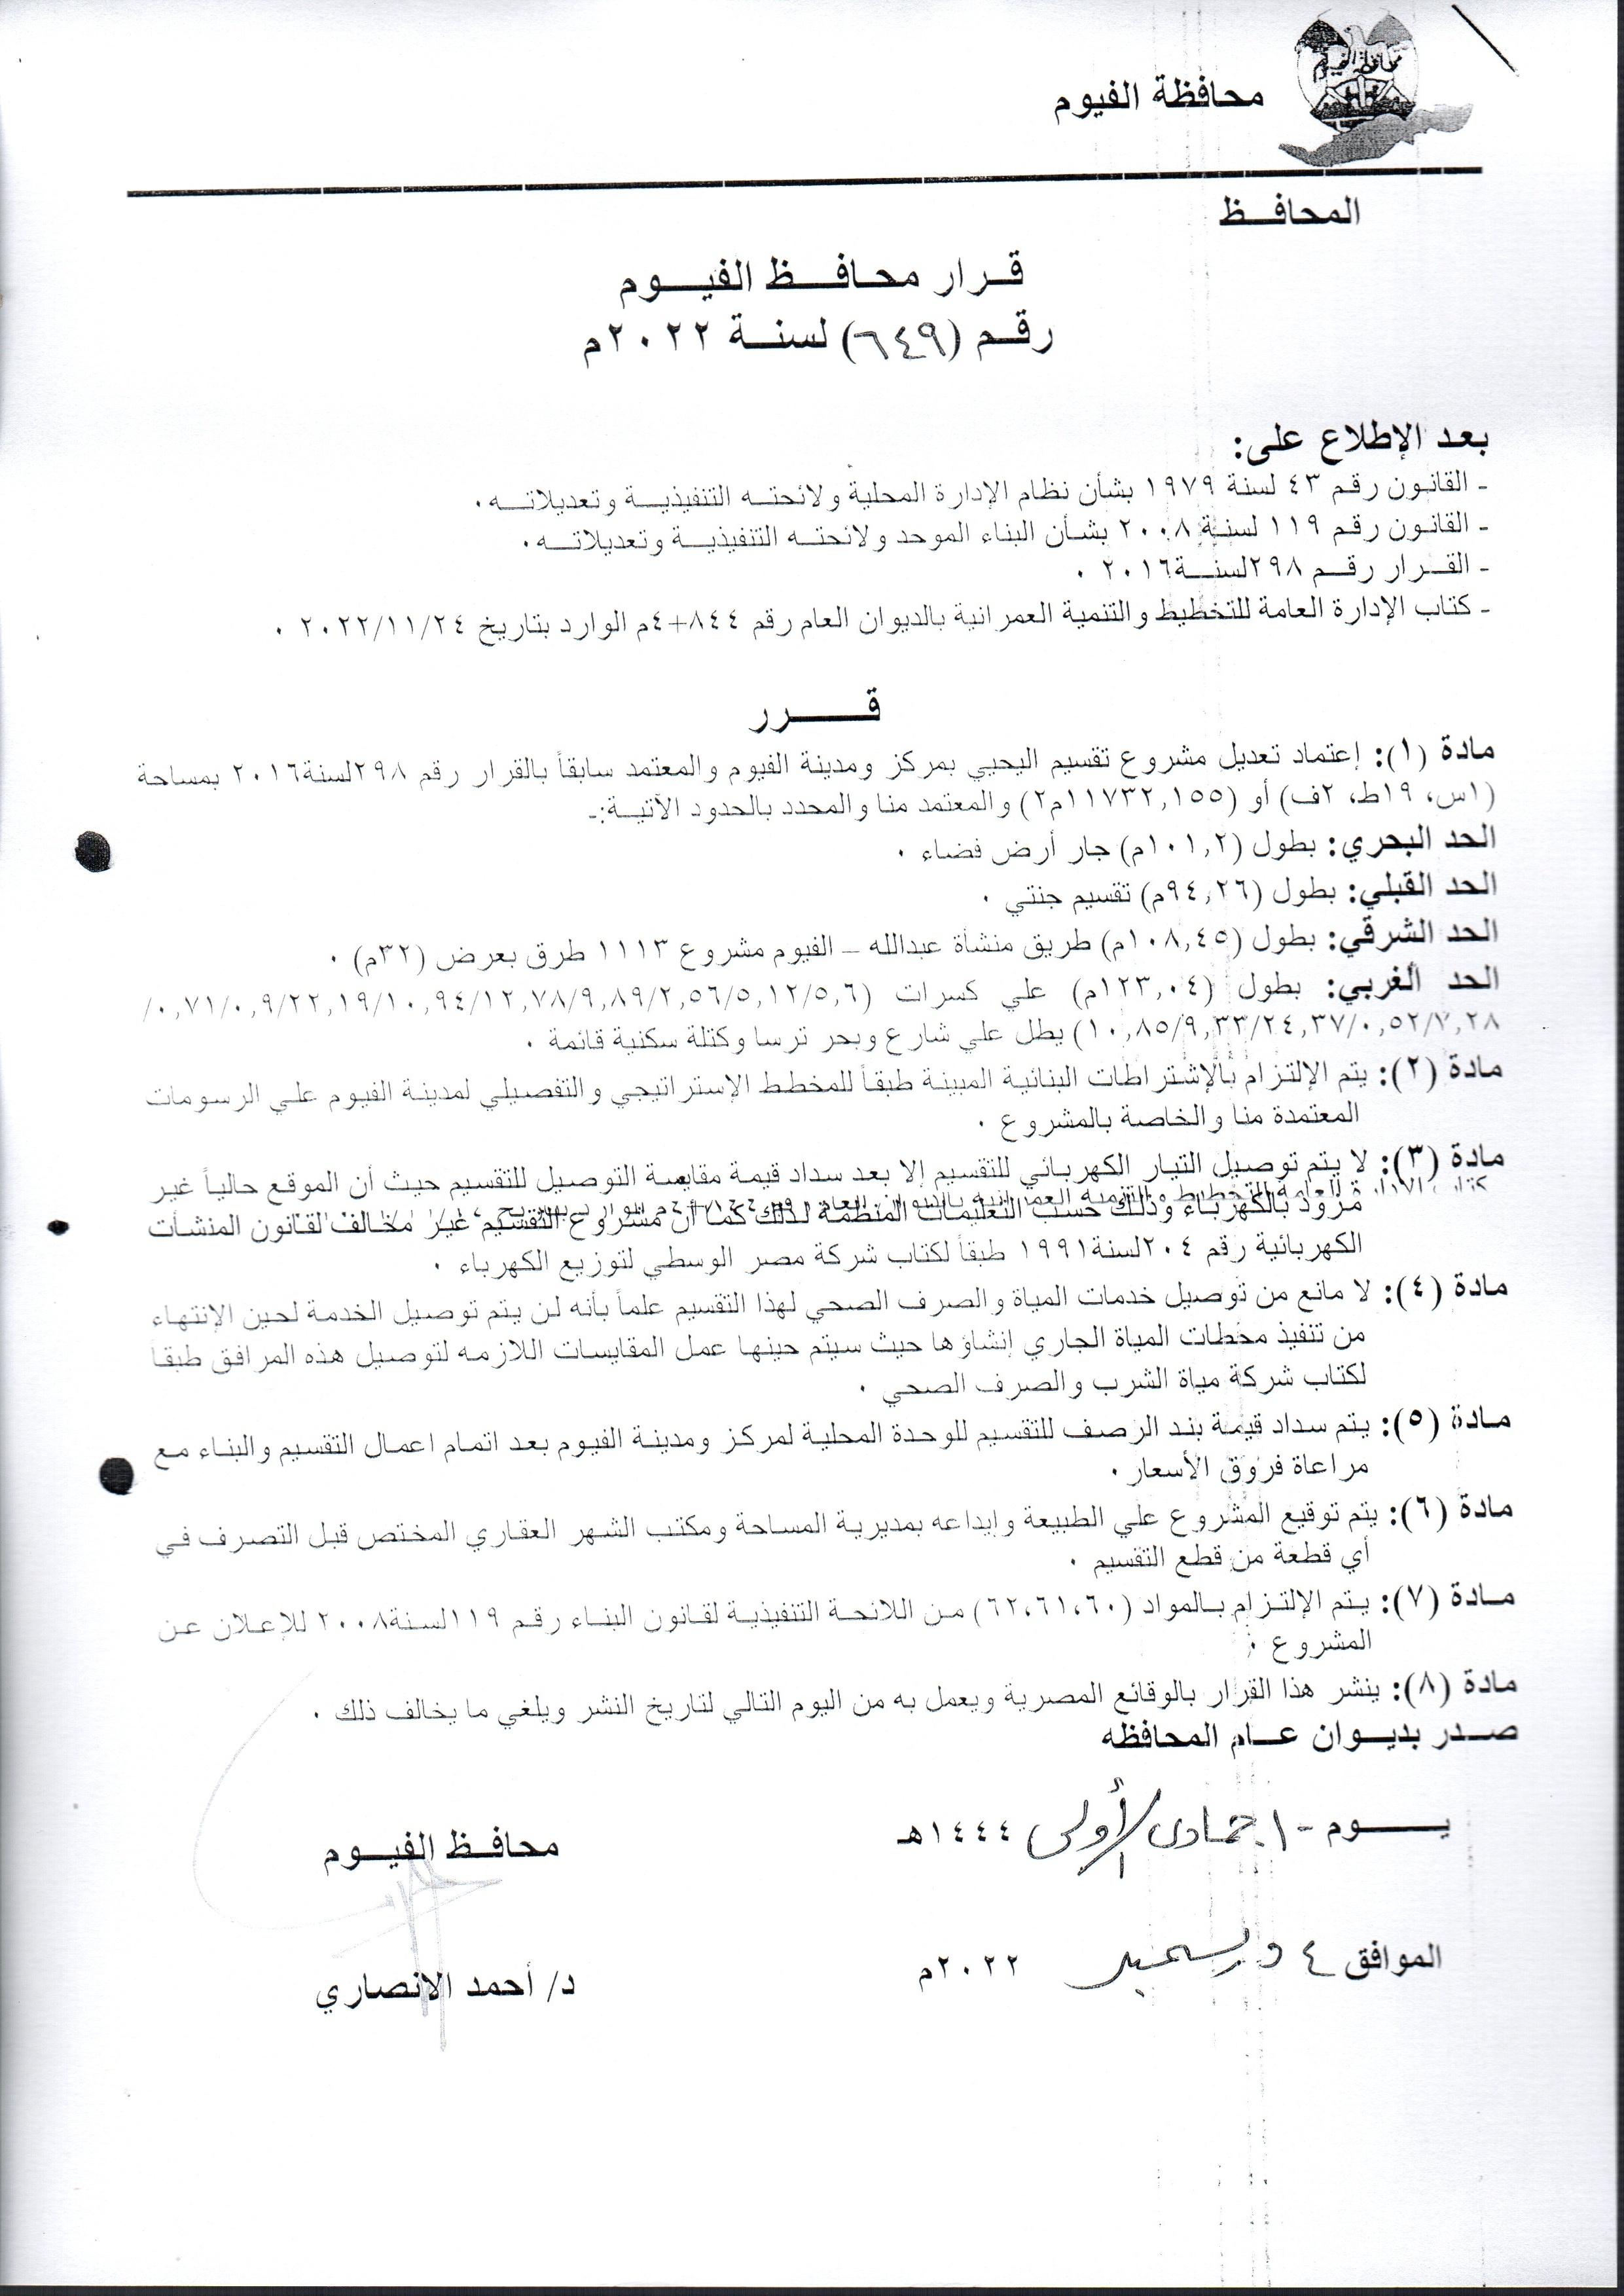 محافظة الفيوم
محافظة الفيوم
المحافــظ
قــرار محـافــــظ الفيـــوم
رقـم (٦٤٩) لسنــة ٢٠٢٢م
بعد الإطلاع على:
- القانون رقم ٤٣ لسنة ١٩٧٩ بشأن نظام الإدارة المحلية ولائحتـه التنفيذيــة وتعديلاتـــه .
- القانون رقم ١١٩ لسنة ٢٠٠٨ بشأن البناء الموحد ولائحتـه التنفيذيــة وتعديلاتـــه .
- القــرار رقــم ٢٩٨لسنـــة٢٠١٦ .
- كتاب الإدارة العامة للتخطيط والتنمية العمرانية بالديوان العام رقم ٨٤٤+٤م الوارد بتاريخ ٢٠٢٢/١١/٢٤ .
قـــــــرر
مادة (١): إعتماد تعديل مشروع تقسيم اليحيي بمركز ومدينة الفيوم والمعتمد سابقاً بالقرار رقم ٢٩٨لسنة٢٠١٦ بمساحة
(١س، ١٩ط، ٢ف) أو (١١٧٣٢,١٥٥م٢) والمعتمد منا والمحدد بالحدود الآتيـة:ـ
الحد البحري: بطول (١٠١,٢م) جار أرض فضاء .
الحد القبلي: بطول (٩٤,٢٦م) تقسيم جنتي .
الحد الشرقي: بطول (١٠٨,٤٥م) طريق منشأة عبدالله – الفيوم مشروع ١١١٣ طرق بعرض (٣٢م) .
الحد الغربي: بطول (١٢٣,٠٤م) علي كسرات (٥,٦/٥,١٢/٢,٥٦/٩,٨٩/١٢,٧٨/١٠,٩٤/٢٢,١٩/٠,٩/٠,٧١/
٧,٢٨/٠,٥٢/٢٤,٣٧/٩,٣٣/١٠,٨٥) يطل علي شارع وبحر ترسا وكتلة سكنية قائمة .
مادة (٢): يتم الإلتزام بالإشتراطات البنائية المبينة طبقاً للمخطط الإستراتيجي والتفصيلي لمدينة الفيوم علي الرسومات
المعتمدة منا والخاصة بالمشروع .
مادة (٣): لا يتم توصيل التيار الكهربائي للتقسيم إلا بعد سداد قيمة مقايسة التوصيل للتقسيم حيث أن الموقع حالياً غير
مزود بالكهرباء وذلك حسب التعليمات المنظمة لذلك كما أن مشروع التقسيم غير مخالف لقانون المنشآت
الكهربائية رقم ٢٠٤لسنة١٩٩١ طبقاً لكتاب شركة مصر الوسطي لتوزيع الكهرباء .
مادة (٤): لا مانع من توصيل خدمات المياة والصرف الصحي لهذا التقسيم علماً بأنه لن يتم توصيل الخدمة لحين الإنتهاء
من تنفيذ محطات المياة الجاري إنشاؤها حيث سيتم حينها عمل المقايسات اللازمه لتوصيل هذه المرافق طبقاً
لكتاب شركة مياة الشرب والصرف الصحي .
مادة (٥): يتم سداد قيمة بند الرصف للتقسيم للوحدة المحلية لمركز ومدينة الفيوم بعد اتمام اعمال التقسيم والبناء مع
مراعاة فروق الأسعار .
مادة (٦): يتم توقيع المشروع علي الطبيعة وإيداعه بمديرية المساحة ومكتب الشهر العقاري المختص قبل التصرف في
أي قطعة من قطع التقسيم .
مادة (٧): يتم الإلتزام بالمواد (٦٢،٦١،٦٠) من اللائحة التنفيذية لقانون البناء رقم ١١٩لسنة٢٠٠٨ للإعلان عن
المشروع .
مادة (٨): ينشر هذا القرار بالوقائع المصرية ويعمل به من اليوم التالي لتاريخ النشر ويلغي ما يخالف ذلك .
صــدر بديــوان عــام المحافظه
يـــــوم ١٠ جمادى الأولى ١٤٤٤هـ
محافــظ الفيــوم
الموافق ٤ ديسمبر ٢٠٢٢م
د/ أحمد الانصاري